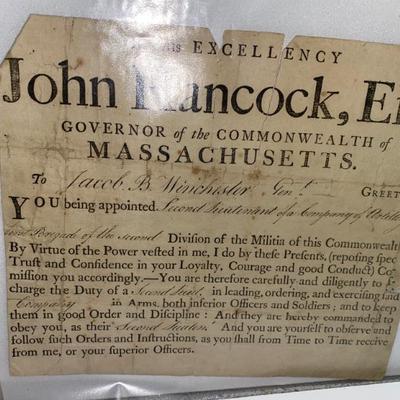 his EXCELLENCY
John Hancock, E
GOVERNOR of the COMMONWEALTH of
MASSACHUSETTS.
To Jacob B. Winchester Gent. GREET
YOU being appointed Second Lieutenant of a Company of
Brigade of the Second Division of the Militia of this Commonwealt
By Virtue of the Power vested in me, I do by these Presents, (reposing spec
Trust and Confidence in your Loyalty, Courage and good Conduct) Co
mission you accordingly.—You are therefore carefully and diligently to
charge the Duty of a Second Lieut. in leading, ordering, and exercising said
Company in Arms, both inferior Officers and Soldiers; and to keep
them in good Order and Discipline: And they are hereby commanded to
obey you, as their Second Lieuten. And you are yourself to observe and
follow such Orders and Instructions, as you shall from Time to Time receive
from me, or your superior Officers.